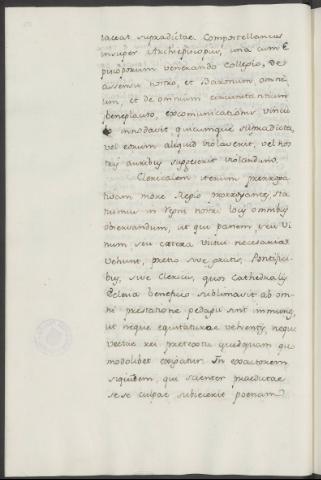 taceat supradictae Compostellanus
insuper Archiepiscopus, una cum E
piscoporum venerando Collegio, de
assensu nostro, et Baronum omni
um, et de omnium circunstantium
beneplacito, excomunicationis vincu
lo innodavit quicumque supradicta,
vel eorum aliquid violaverit, vel nos
tris auribus suggesserit violandum.
Clericalem iterum prerroga
tivam more Regio prorrogantes, sta
tuimus in regni nostri locis omnibus
observandum, ut qui panem, seu vi
num seu caetera victui necesaria
vehunt, pretio sive gratis, Pontifici
bus, sive Clericis, quos Cathedralis
Eclesia beneficio sublimavit ab om
ni prestatione pedagii sint immunes,
ut neque equitaturae vehentis, neque
vectae rei pretextu quidquam quo
modolibet exigatur. In exactorem
siquidem, qui scienter praedictae
se se culpae subiecerit poenam